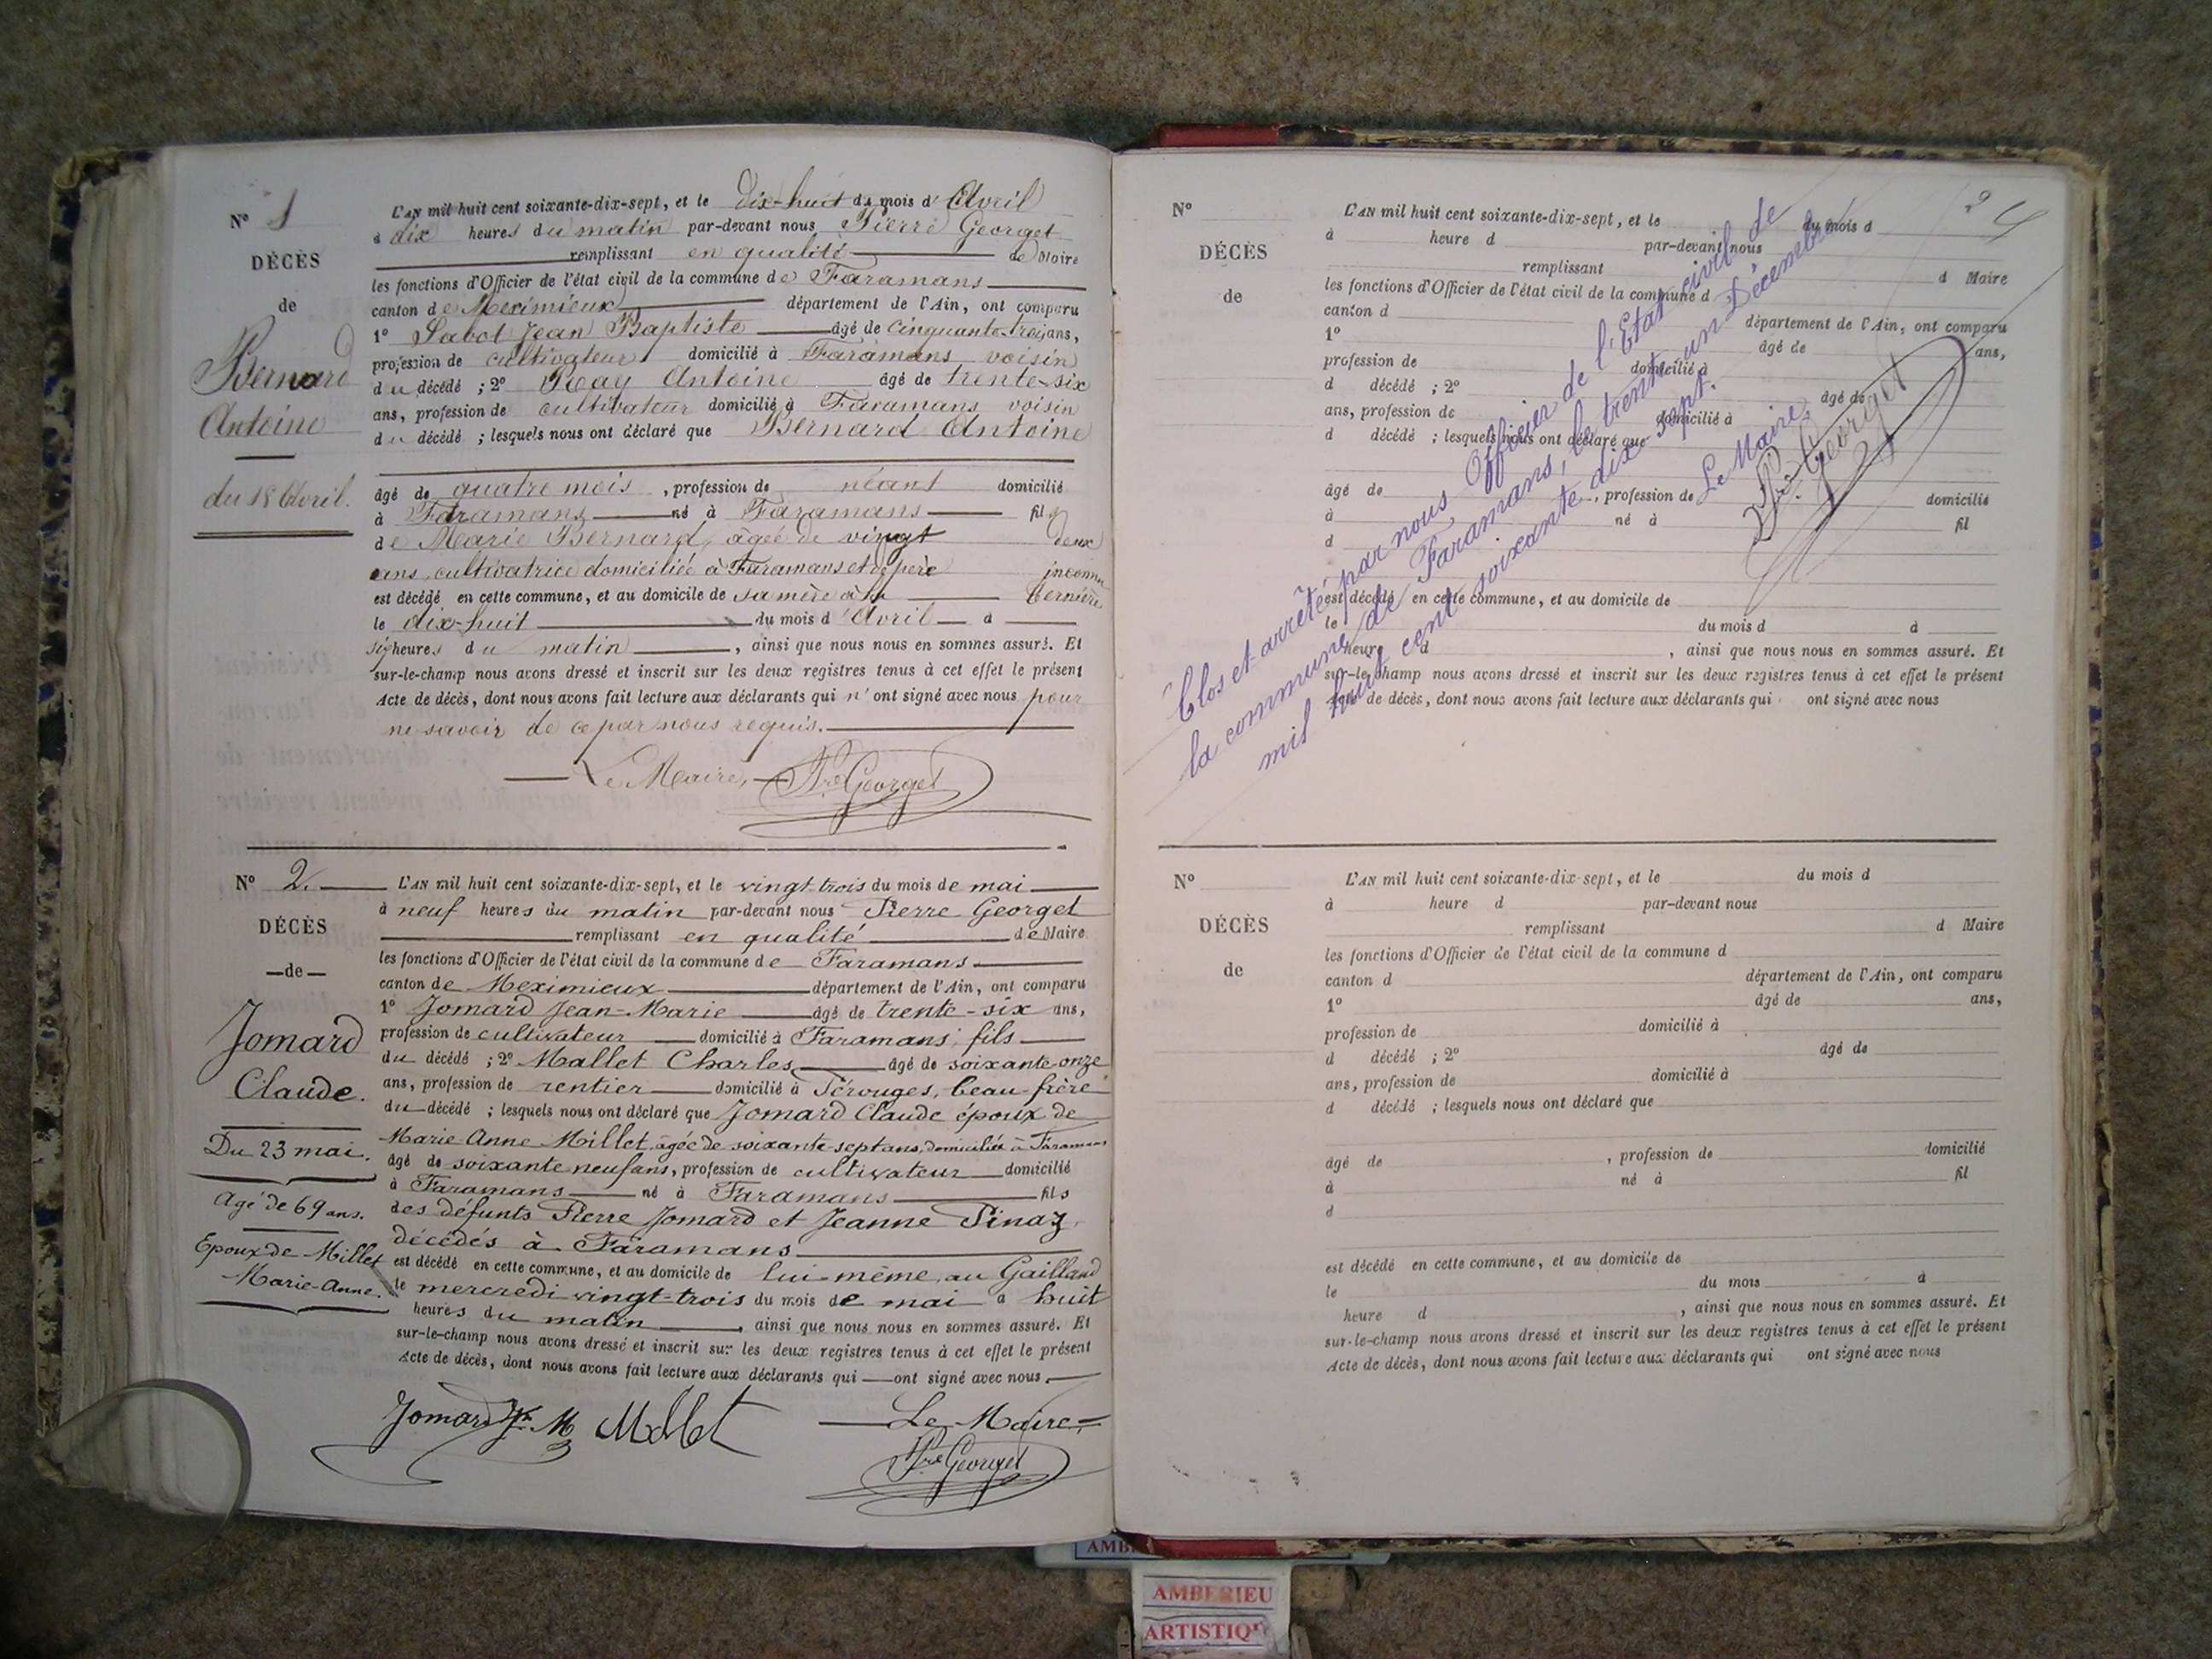 N° 1
DÉCÈS
de
Bernard
Antoine
du 18 Avril.
L'AN mil huit cent soixante-dix-sept, et le dix-huit du mois d'Avril
à dix heures du matin par-devant nous Pierre Georget
remplissant en qualité de Maire
les fonctions d'Officier de l'état civil de la commune de Faramans
canton de Meximieux département de l'Ain, ont comparu
1° Sabot Jean Baptiste âgé de cinquante-trois ans,
profession de cultivateur domicilié à Faramans voisin
du décédé ; 2° Ray Antoine âgé de trente-six
ans, profession de cultivateur domicilié à Faramans voisin
du décédé ; lesquels nous ont déclaré que Bernard Antoine
âgé de quatre mois, profession de néant domicilié
à Faramans né à Faramans fils
de Marie Bernard, âgée de vingt deux
ans, cultivatrice domiciliée à Faramans et de père inconnu
est décédé en cette commune, et au domicile de sa mère à la
le dix-huit du mois d'Avril à
heures du matin, ainsi que nous nous en sommes assuré. Et
sur-le-champ nous avons dressé et inscrit sur les deux registres tenus à cet effet le présent
Acte de décès, dont nous avons fait lecture aux déclarants qui n'ont signé avec nous pour
ne savoir de ce par nous requis.
Le Maire, Pre Georget
N° 2.
DÉCÈS
de
Jomard
Claude.
Du 23 mai.
Agé de 69 ans.
Epoux de Millet
Marie-Anne.
L'AN mil huit cent soixante-dix-sept, et le vingt-trois du mois de mai
à neuf heures du matin par-devant nous Pierre Georget
remplissant en qualité de Maire
les fonctions d'Officier de l'état civil de la commune de Faramans
canton de Meximieux département de l'Ain, ont comparu
1° Jomard Jean-Marie âgé de trente-six ans,
profession de cultivateur domicilié à Faramans, fils
du décédé ; 2° Mallet Charles âgé de soixante-onze
ans, profession de rentier domicilié à Pérouges, beau-frère
du décédé ; lesquels nous ont déclaré que Jomard Claude époux de
Marie-Anne Millet, âgée de soixante-sept ans, domiciliée à Faramans
âgé de soixante neuf ans, profession de cultivateur domicilié
à Faramans né à Faramans fils
des défunts Pierre Jomard et Jeanne Pinaz,
décédés à Faramans
est décédé en cette commune, et au domicile de lui-même, au Gailland
le mercredi vingt-trois du mois de mai à huit
heures du matin, ainsi que nous nous en sommes assuré. Et
sur-le-champ nous avons dressé et inscrit sur les deux registres tenus à cet effet le présent
Acte de décès, dont nous avons fait lecture aux déclarants qui ont signé avec nous.
Jomard Jn M Mallet Le Maire,
Pre Georget
2
N°
DÉCÈS
de
L'AN mil huit cent soixante-dix-sept, et le du mois d
à heure d par-devant nous
remplissant d Maire
les fonctions d'Officier de l'état civil de la commune d
canton d département de l'Ain, ont comparu
1° âgé de ans,
profession de domicilié à
d décédé ; 2° âgé de
ans, profession de domicilié à
d décédé ; lesquels nous ont déclaré que
âgé de , profession de domicilié
à né à fil
d
est décédé en cette commune, et au domicile de
le du mois d à
heure d , ainsi que nous nous en sommes assuré. Et
sur-le-champ nous avons dressé et inscrit sur les deux registres tenus à cet effet le présent
Acte de décès, dont nous avons fait lecture aux déclarants qui ont signé avec nous
Clos et arrêté par nous Officier de l'Etat civil de
la commune de Faramans, le trente-un Décembre
mil huit cent soixante dix-sept.
Le Maire,
Pre Georget
N°
DÉCÈS
de
L'AN mil huit cent soixante-dix-sept, et le du mois d
à heure d par-devant nous
remplissant d Maire
les fonctions d'Officier de l'état civil de la commune d
canton d département de l'Ain, ont comparu
1° âgé de ans,
profession de domicilié à
d décédé ; 2° âgé de
ans, profession de domicilié à
d décédé ; lesquels nous ont déclaré que
âgé de , profession de domicilié
à né à fil
d
est décédé en cette commune, et au domicile de
le du mois d à
heure d , ainsi que nous nous en sommes assuré. Et
sur-le-champ nous avons dressé et inscrit sur les deux registres tenus à cet effet le présent
Acte de décès, dont nous avons fait lecture aux déclarants qui ont signé avec nous
AMBERIEU
ARTISTIQ